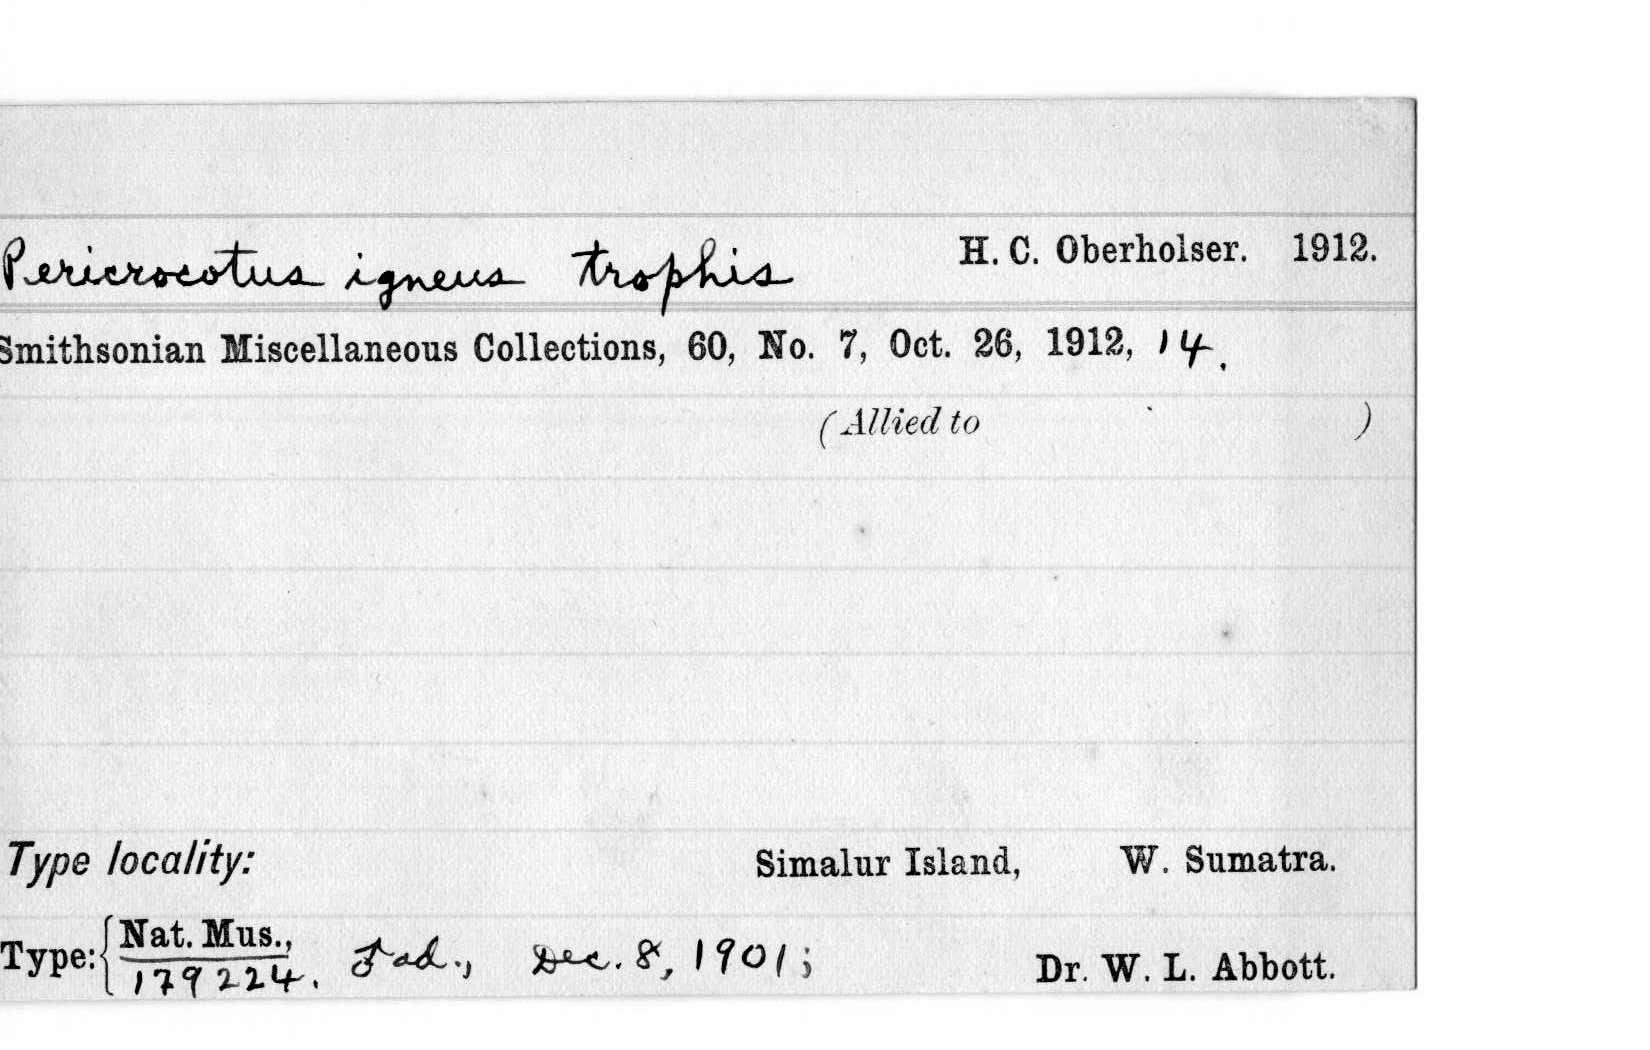 Pericrocotus igneus trophis H. C. Oberholser. 1912.
Smithsonian Miscellaneous Collections, 60, No. 7, Oct. 26, 1912, 14.
(Allied to )
Type locality: Simalur Island, W. Sumatra.
Type: { Nat. Mus.,
179224. Fad., Dec. 8, 1901; Dr. W. L. Abbott.